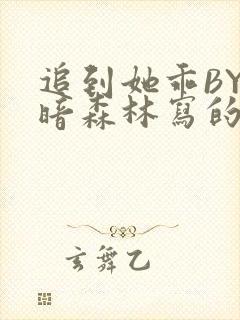 追到她乖BY
暗森林寫的
玄舞乙